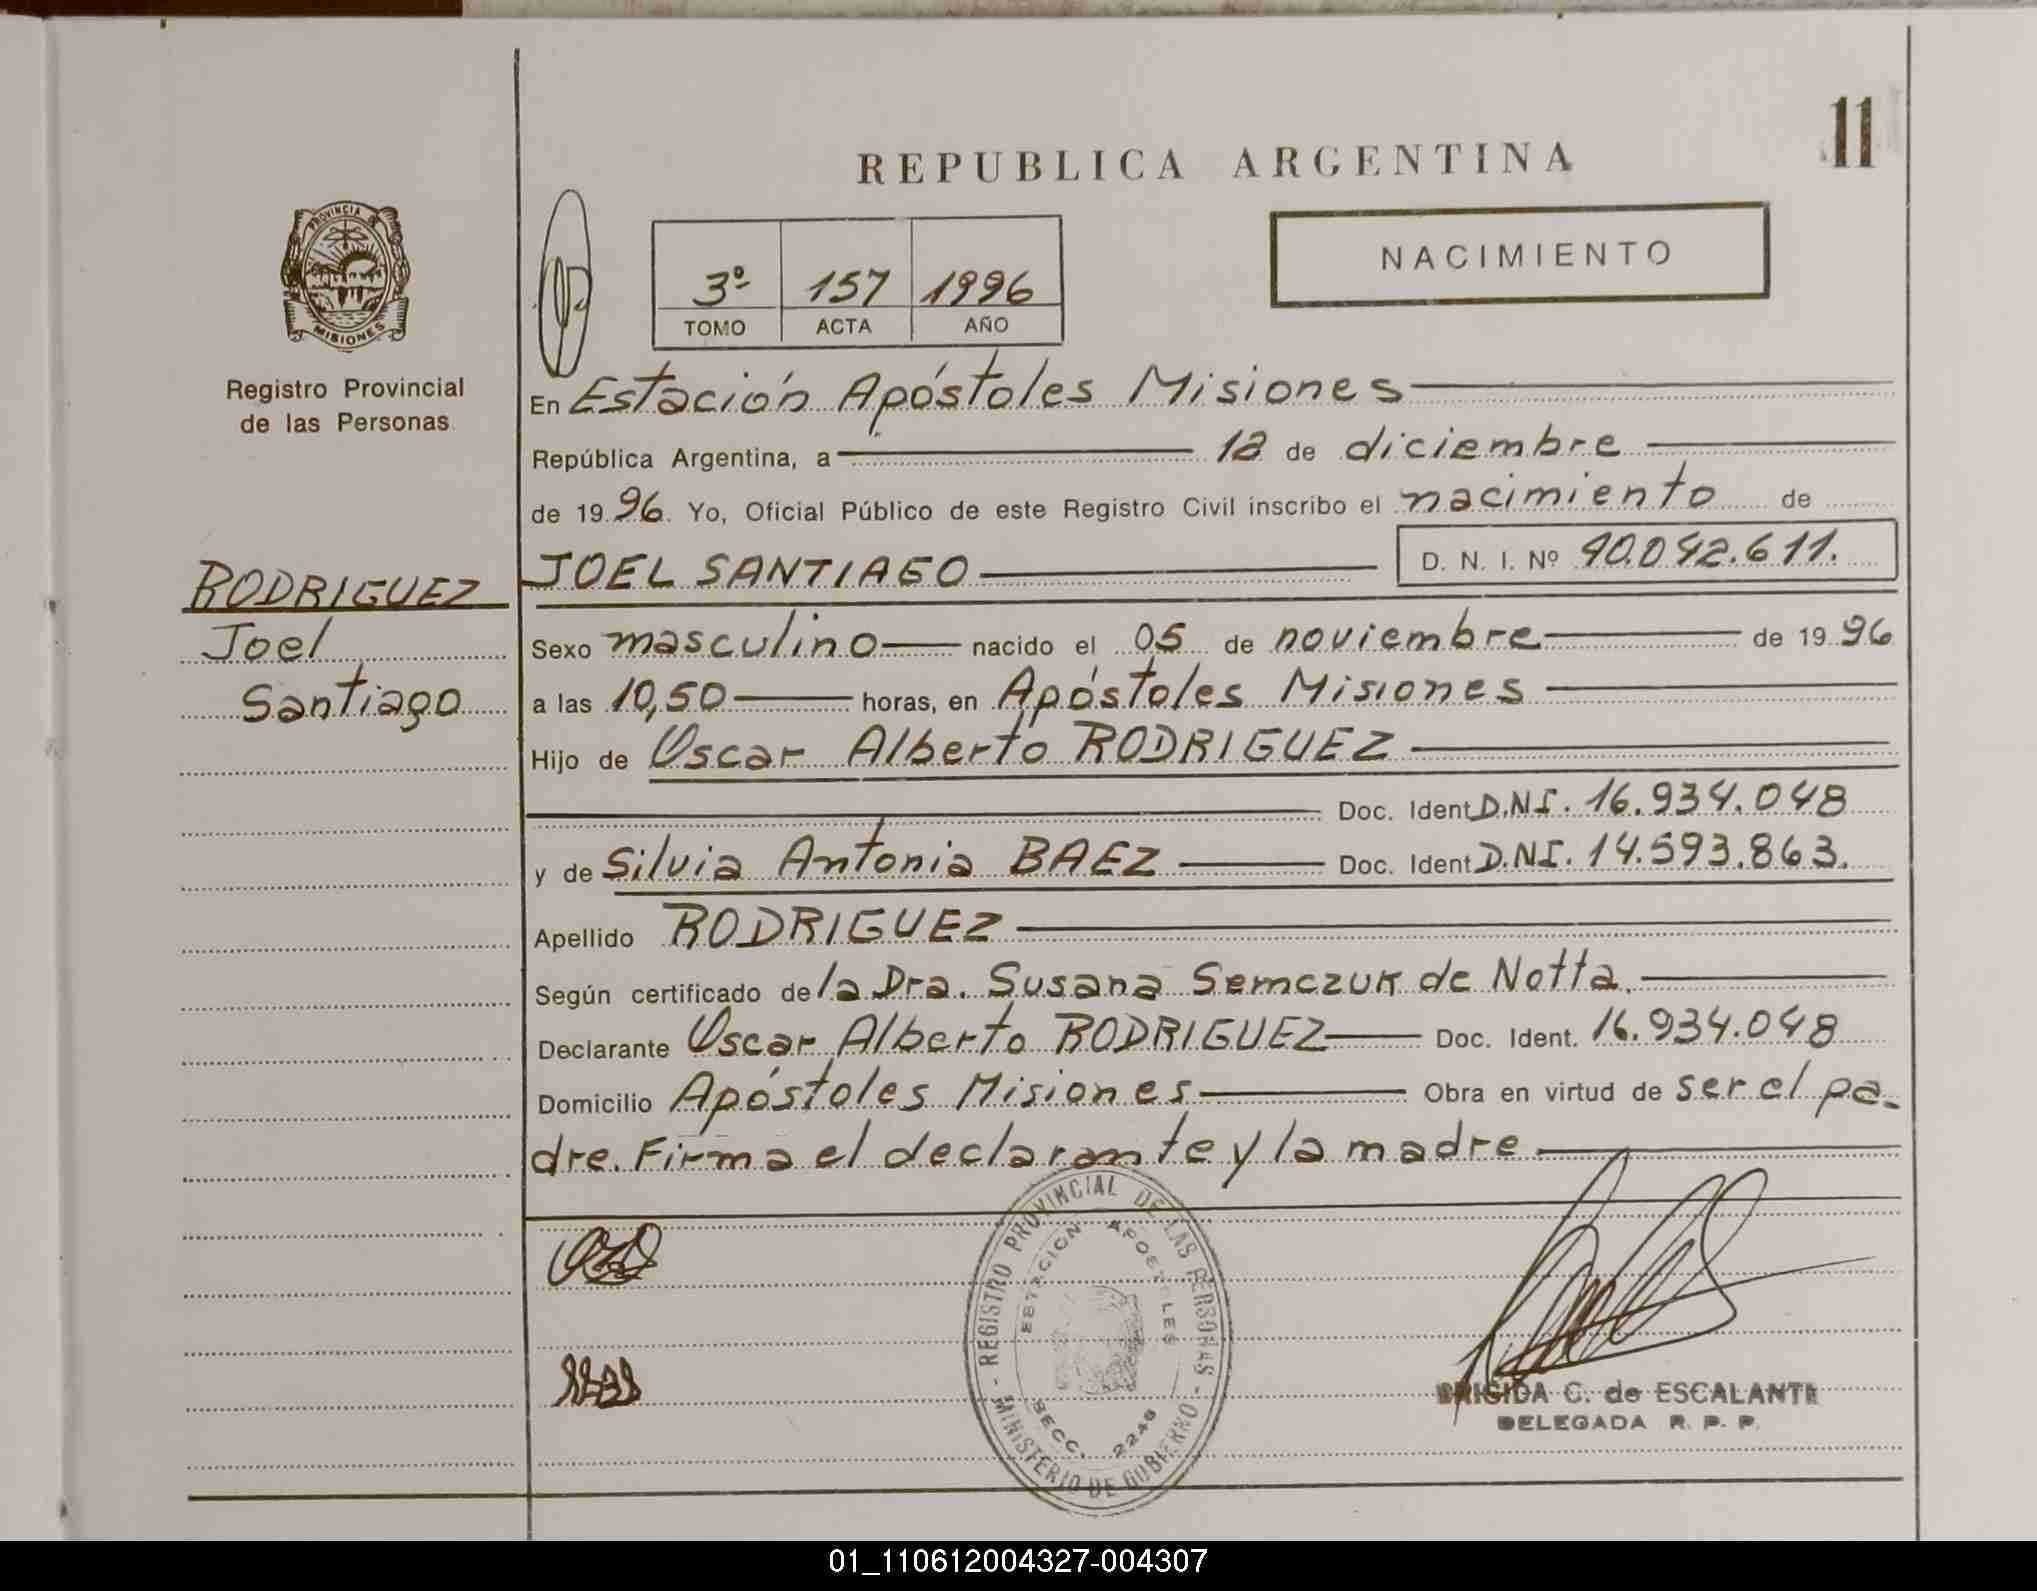 11
REPUBLICA ARGENTINA
PROVINCIA DE
MISIONES
Registro Provincial
de las Personas
3º 157 1996
TOMO ACTA AÑO
NACIMIENTO
En Estación Apóstoles Misiones
República Argentina, a 12 de diciembre
de 1996. Yo, Oficial Público de este Registro Civil inscribo el nacimiento de
RODRIGUEZ
Joel
Santiago
JOEL SANTIAGO D. N. I. Nº 40.042.611.
Sexo masculino nacido el 05 de noviembre de 1996
a las 10,50 horas, en Apóstoles Misiones
Hijo de Oscar Alberto RODRIGUEZ
Doc. Ident D.N.I. 16.934.048
y de Silvia Antonia BAEZ Doc. Ident D.N.I. 14.593.863.
Apellido RODRIGUEZ
Según certificado de la Dra. Susana Semczuk de Notta.
Declarante Oscar Alberto RODRIGUEZ Doc. Ident. 16.934.048
Domicilio Apóstoles Misiones Obra en virtud de ser el pa-
dre. Firma el declarante y la madre
- REGISTRO PROVINCIAL DE LAS PERSONAS -
MINISTERIO DE GOBIERNO
ESTACION APOSTOLES
SECC. 2246
BRIGIDA C. de ESCALANTE
DELEGADA R. P. P.
01_110612004327-004307